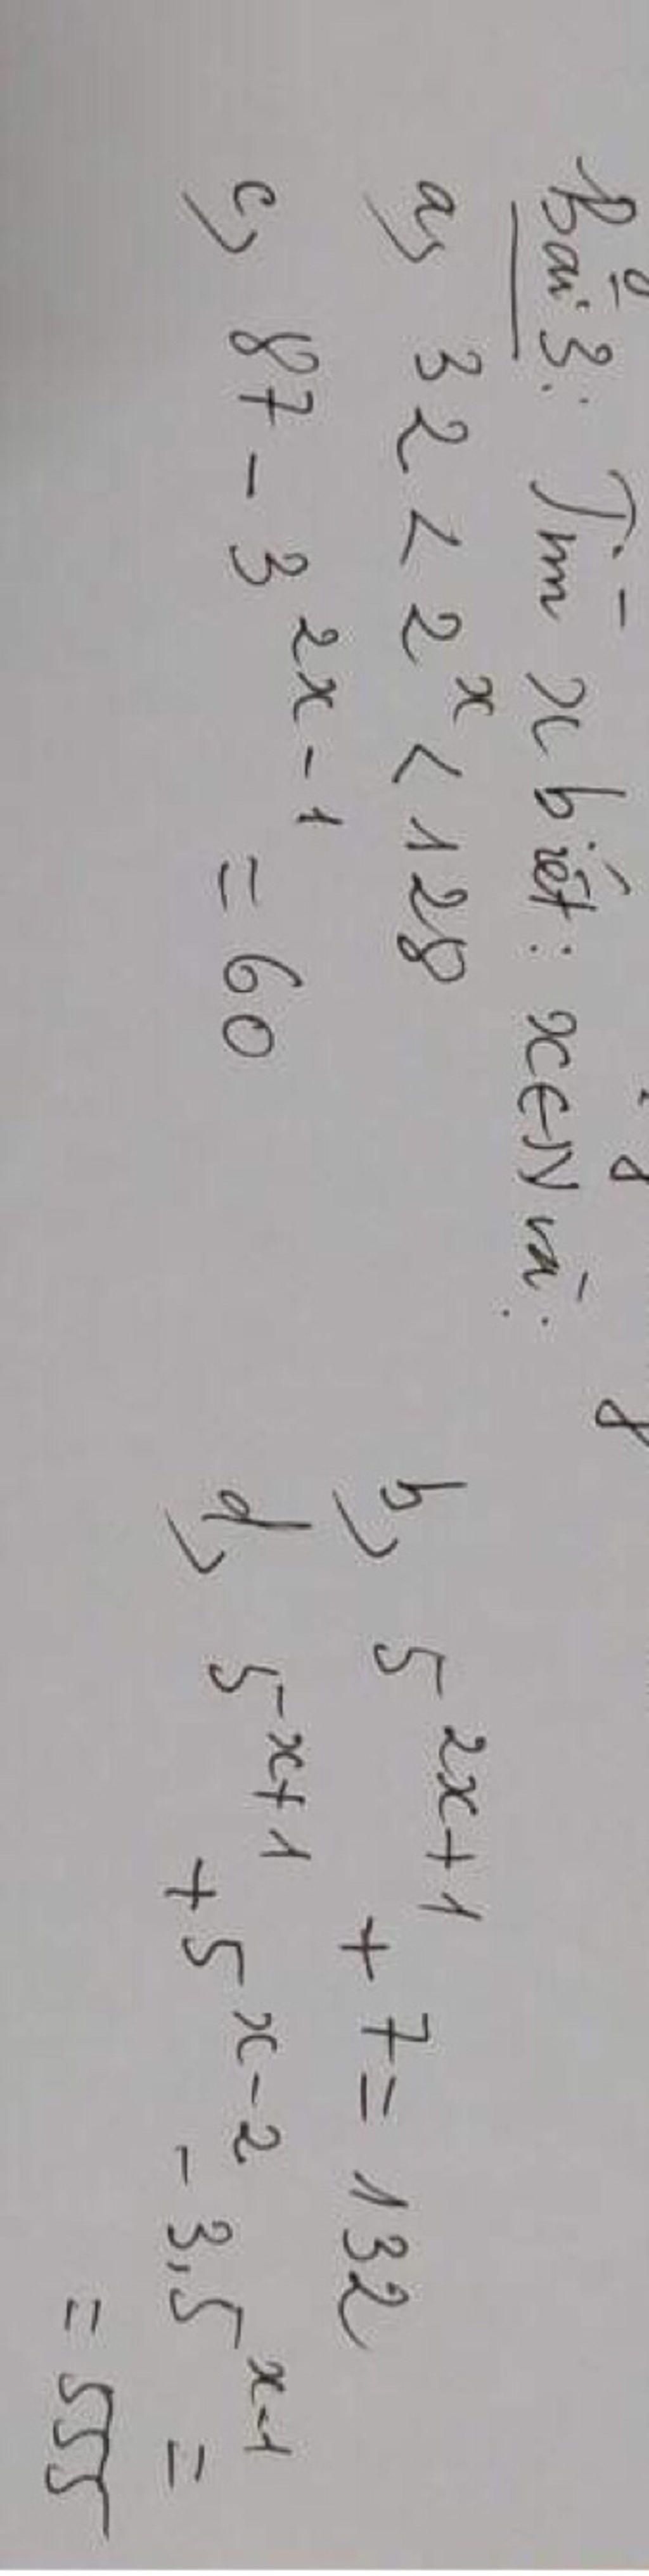 Bài 3: Tìm x biết: x∈N và:
a) 32 < 2^x < 128
b) 5^{2x+1} + 7 = 132
c) 87 - 3^{2x-1} = 60
d) 5^{x+1} + 5^{x-2} - 3.5^{x-1} =
= 555